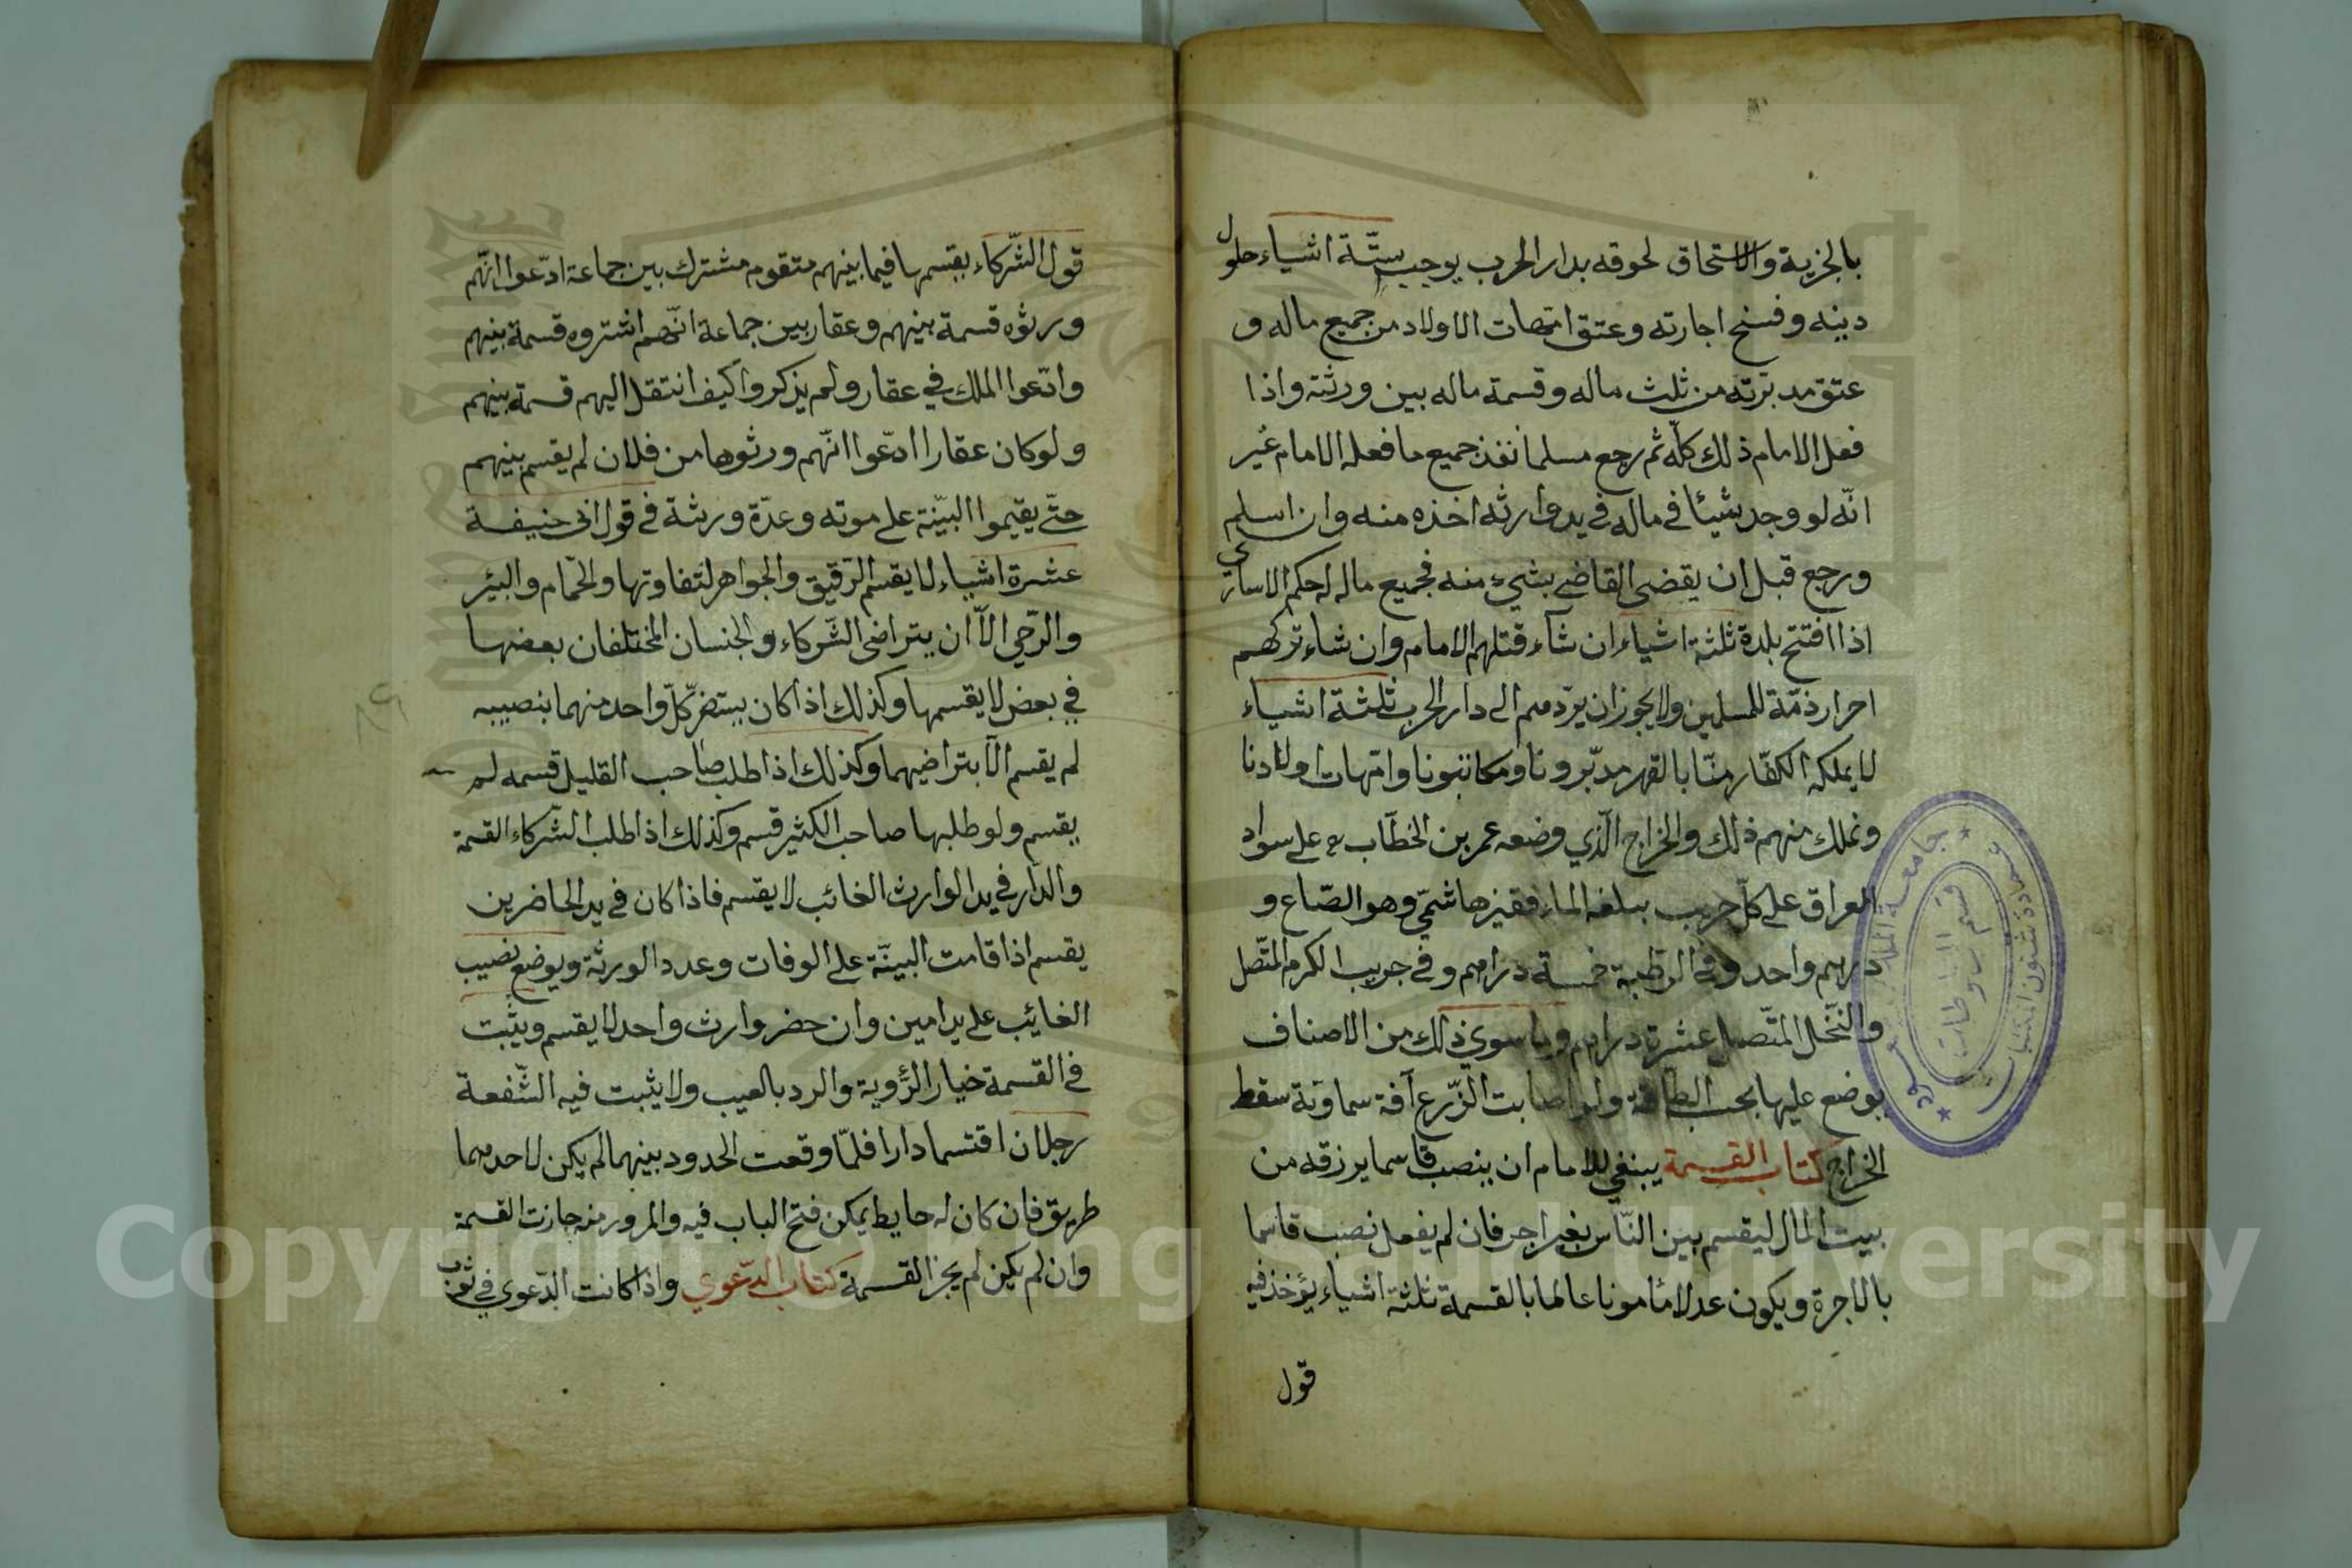 بالجزية والاستحاق لحوقه بدار الحرب يوجب ستّة اشياء حلول
دينه وفسخ اجارته وعتق امّهات الاولاد من جميع ماله و
عتق مدبّرته من ثلث ماله وقسمة ماله بين ورثته واذا
فعل الامام ذلك كلّه ثم رجع مسلما نفذ جميع ما فعله الامام غير
انّه لو وجد شيئا في ماله في يد وارثه اخذه منه وان اسلم
ورجع قبل ان يقضى القاضي بشيء منه فجميع ماله له حكم الاسارى
اذا افتتح بلدة ثلثة اشياء ان شاء قتلهم الامام وان شاء تركهم
احرار ذمّة للمسلمين ولا يجوز ان يردهم الى دار الحرب ثلثة اشياء
لا يملكه الكفّار منّا بالقهر مدبّرونا ومكاتبونا وامّهات اولادنا
ونملك منهم ذلك والخراج الّذي وضعه عمر بن الخطّاب على سواد
العراق على كلّ جريب يبلغه الماء قفيز هاشمّي وهو الصّاع و
درهم واحد وفي الرّطبة خمسة دراهم وفي جريب الكرم المتّصل
والنّخل المتّصل عشرة دراهم وما سوي ذلك من الاصناف
يوضع عليها بحسب الطاقة ولو اصابت الزّرع آفة سماوّية سقط
الخراج كتاب القسمة ينبغي للامام ان ينصب قاسما يرزقه من
بيت المال ليقسم بين النّاس بغير اجر فان لم يفعل نصب قاسما
بالاجرة ويكون عدلا مأمونا عالما بالقسمة ثلثة اشياء يؤخذ فيه
قول
قول الشّركاء يقسمها فيما بينهم متقوم مشترك بين جماعة ادّعوا انّهم
ورثوه قسمة بينهم وعقار بين جماعة انّهم اشتروه قسمة بينهم
وادّعوا الملك في عقار ولم يذكروا كيف انتقل اليهم قسمة بينهم
ولو كان عقارا ادّعوا انّهم ورثوها من فلان لم يقسم بينهم
حتّى يقيموا البيّنة على موته وعدّة ورثة في قول ابى حنيفة
عشرة اشياء لا يقسم الرّقيق والجواهر لتفاوتها والحّمام والبئر
والرّحي الاّ ان يتراضى الشّركاء والجنسان المختلفان بعضها
في بعض لا يقسمها وكذلك اذا كان يستضرّ كلّ واحد منهما بنصيبه
لم يقسم الاّ بتراضيهما وكذلك اذا طلب صاحب القليل قسمه لم
يقسم ولو طلبها صاحب الكثير قسم وكذلك اذا طلب الشّركاء القسمة
والدّار في يد الوارث الغائب لا يقسم فاذا كان في يد الحاضرين
يقسم اذا قامت البينّة على الوفات وعدد الورثة ويوضع نصيب
الغائب على يد امين وان حضر وارث واحد لا يقسم ويثبت
في القسمة خيار الرّؤية والرد بالعيب ولا يثبت فيه الشّفعة
رجلان اقتسما دارا فلمّا وقعت الحدود بينهما لم يكن لاحدهما
طريق فان كان له حايط يمكن فتح الباب فيه والمرور منه جازت القسمة
وان لم يكن لم يجز القسمة كتاب الدّعوي واذا كانت الدّعوي في ثوب
جامعة الملك سعود
عمادة شئون المكتبات
قسم المخطوطات
Copyright © King Saud University
1957